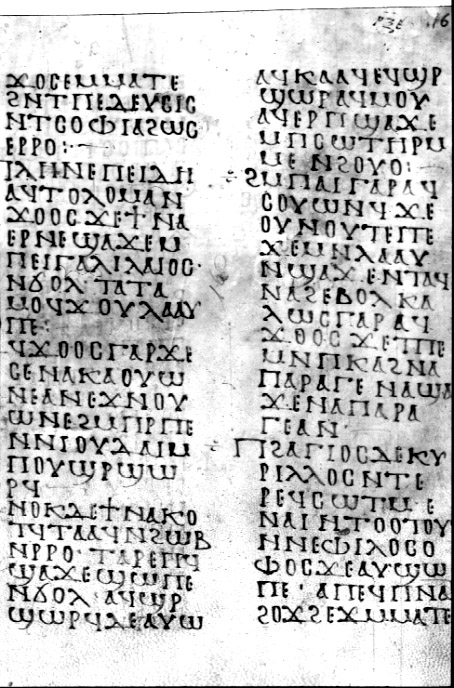 ϪⲞⲤⲈⲘⲘⲀⲦⲈ
ϨⲚⲦⲠⲈⲆⲈⲨⲤⲒⲤ
ⲚⲦⲤⲞⲪⲒⲀϨⲰⲤ
ⲈⲢⲢⲞ:
ⲀϤⲦⲞⲖⲘⲀⲚ
ϪⲞⲞⲤϪⲈϮⲚⲀ
ⲈⲢⲚⲈϢⲀϪⲈⲘ
ⲠⲈⲒⲄⲀⲖⲒⲖⲀⲒⲞⲤ·
ⲚϬⲞⲖ·ⲦⲀⲦⲀ
ⲘⲞϤϪⲞⲨⲖⲀⲀⲨ
ⲠⲈ·
ϤϪⲞⲞⲤⲄⲀⲢϪⲈ
ⲤⲈⲚⲀⲔⲀⲞⲨⲰ
ⲚⲈⲀⲚⲈϪⲚⲞⲨ
ⲰⲚⲈϨⲘⲠⲢⲠⲈ
ⲚⲚⲒⲞⲨⲆⲀⲒ
ⲠⲞⲨϢⲢϢⲰ
ⲢϤ
ⲚⲞⲔⲆⲈϮⲚⲀⲔⲞ
ⲦϤⲦⲀⲀϤⲚϨⲰⲂ
ⲚⲢⲢⲞ·ⲦⲀⲢⲈⲠⲈϤ
ϢⲀϪⲈϢⲰⲠⲈ
ⲚϬⲞⲖ·ⲀϤϢⲢ
ϢⲰⲢϤⲆⲈⲀⲨⲰ
ⲢϤⲈ 16
ⲀϤⲔⲀⲀϤⲈϤϢⲢ
ϢⲰⲢⲀϤⲘⲞⲨ
ⲀϤⲈⲢⲠϢⲀϪⲈ
ⲘⲠⲤⲰⲦⲎⲢⲘ
ⲘⲈⲚϨⲞⲨⲞ:
ϨⲘⲠⲀⲒⲄⲀⲢⲀϤ
ⲤⲞⲨⲰⲚϤϪⲈ
ⲞⲨⲚⲞⲨⲦⲈⲠⲈ
ϪⲈⲘⲚⲖⲀⲀⲨ
ⲚϢⲀϪⲈⲚⲦⲀϤ
ⲚⲀϨⲈⲈⲂⲞⲖⲔⲀ
ⲖⲰⲤⲄⲀⲢⲀϤ
ϪⲞⲞⲤϪⲈⲦⲠⲈ
ⲘⲚⲠⲔⲀϨⲚⲀ
ⲠⲀⲢⲀⲄⲈⲚⲀϢⲀ
ϪⲈⲚⲀⲠⲀⲢⲀ
ⲄⲈⲀⲚ·
ⲠϨⲀⲄⲒⲞⲤⲆⲈⲔⲨ
ⲢⲒⲖⲖⲞⲤⲚⲦⲈ
ⲢⲈϤⲤⲰⲦⲘⲈ
ⲚⲀⲒⲚⲦⲞⲞⲦⲞⲨ
ⲚⲚⲈⲪⲒⲖⲞⲤⲞ
ⲪⲞⲤϪⲈⲀⲨϢⲰ
ⲠⲈ·ⲀⲠⲈϤⲠⲚⲀ
ϨⲞϪϨⲈϪⲘⲘⲀⲦⲈ